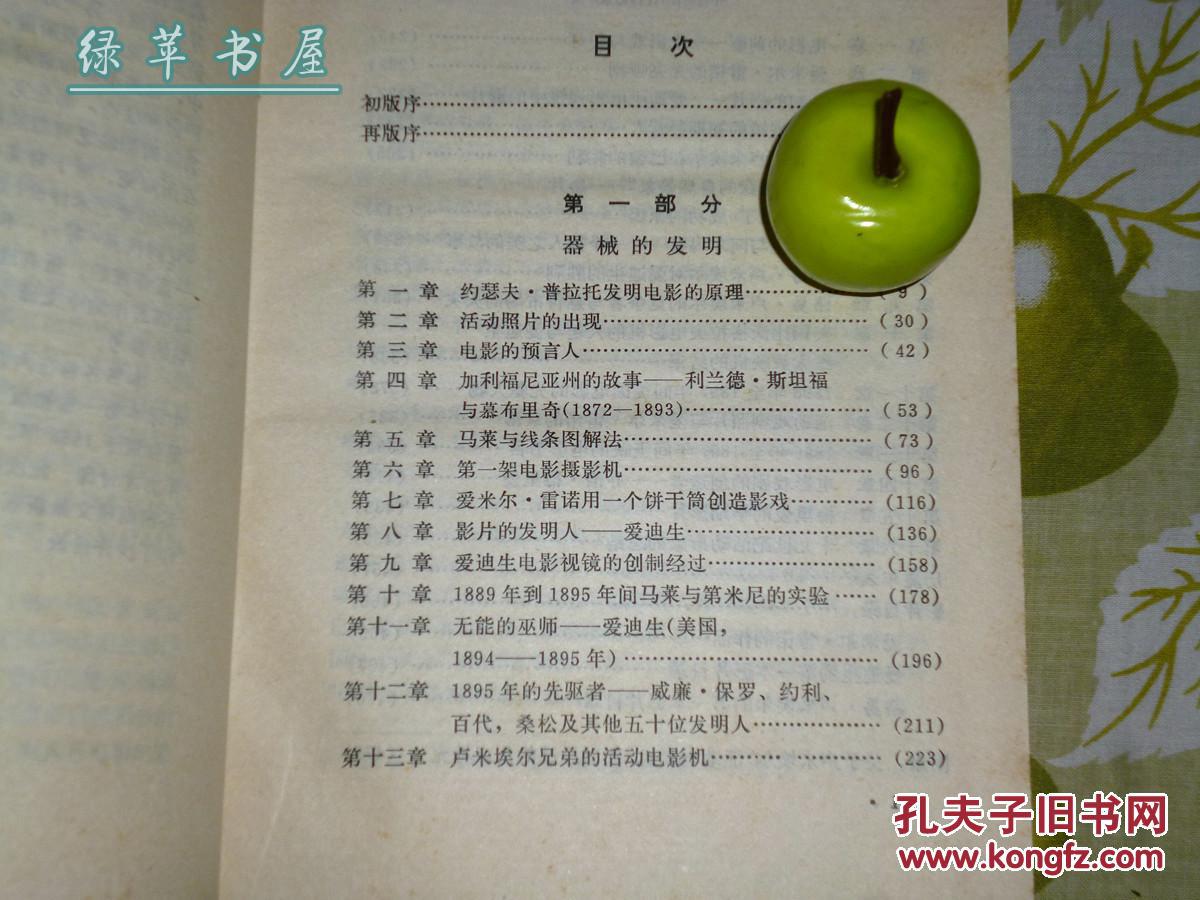 绿苹书屋
目 次
初版序……………………………………
再版序……………………………………
第一部分
器械的发明
第一章 约瑟夫·普拉托发明电影的原理…………… ( 9 )
第二章 活动照片的出现……………………………… ( 30 )
第三章 电影的预言人………………………………… ( 42 )
第四章 加利福尼亚州的故事——利兰德·斯坦福
与慕布里奇(1872—1893)…………………… ( 53 )
第五章 马莱与线条图解法…………………………… ( 73 )
第六章 第一架电影摄影机…………………………… ( 96 )
第七章 爱米尔·雷诺用一个饼干筒创造影戏………… (116)
第八章 影片的发明人——爱迪生…………………… (136)
第九章 爱迪生电影视镜的创制经过………………… (158)
第十章 1889年到1895年间马莱与第米尼的实验…… (178)
第十一章 无能的巫师——爱迪生(美国，
1894——1895年)…………………………… (196)
第十二章 1895年的先驱者——威廉·保罗、约利、
百代，桑松及其他五十位发明人……………… (211)
第十三章 卢米埃尔兄弟的活动电影机……… ………… (223)
孔夫子旧书网
www.kongfz.com